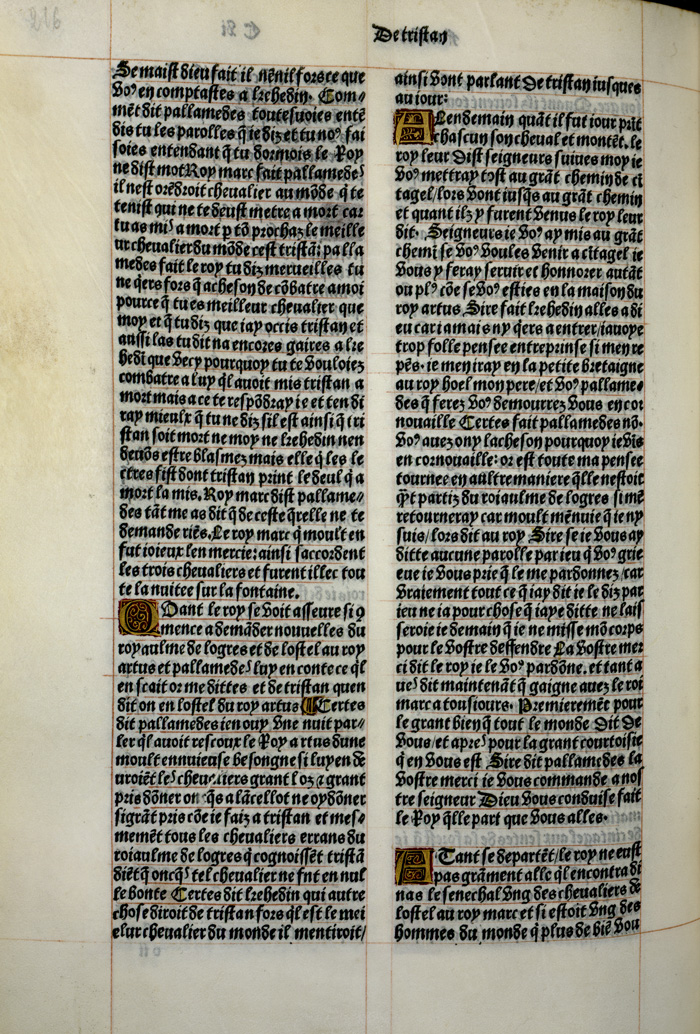 216
De tristan
Se maist dieu fait il nēnil fors ce que
voꝰ en comptastes a lrehedin. Com⸗
mēt dit pallamedes toutesuoies entē
dis tu les parolles q̄ ie diz et tu noꝰ fai
soies entendant q̄ tu dormois le Roy
ne dist mot Roy marc fait pallamedes
il nest orēdroit cheualier au mōde q̄ te
tenist qui ne te deust metre a mort car
tu as mis a mort p tō prochaz le meille
ur cheualier du mōde cest tristā: palla
medes fait le roy tu diz merueilles tu
ne q̄ers fors q̄ acheson de cōbatre a moi
pource q̄ tu es meilleur cheualier que
moy et q̄ tu diz que iay occis tristan et
aussi las tu dit na encores gaires a lre
hedī que vecy pourquoy tu te vouloiez
combatre a luy q̄l auoit mis tristan a
mort mais a ce te respōdray ie et ten di
ray mieulx q̄ tu ne diz sil est ainsi q̄ tri
stan soit mort ne moy ne lrehedin nen
deuōs estre blasmez mais elle q̄ les le
ctres fist dont tristan print le deul q̄ a
mort la mis. Roy marc dist pallame⸗
des tāt me as dit q̄ de ceste q̄relle ne te
demande riēs. Le roy marc q̄ moult en
fut ioieux len mercie: ainsi saccordent
les trois cheualiers et furent illec tou
te la nuitee sur la fontaine.
Quant le roy se voit asseure si ꝯ
mence a demāder nouuelles du
royaulme de logres et de lostel au roy
artus et pallamedes luy en conte ce q̄l
en scait or me dittes et de tristan quen
dit on en lostel du roy artus Certes
dit pallamedes ien ouy vne nuit par⸗
ler q̄l auoit rescoux le Roy artus dune
moult ennuieuse besongne si luy en dē
uroiēt les cheualiers grant loz et grant
pris dōner on q̄s a lācellot ne oy dōner
si grāt pris cōe ie faiz a tristan et mes⸗
memēt tous les cheualiers errans du
roiaulme de logres q̄ cognoissēt tristā
diēt q̄ oncqs tel cheualier ne fut en nul
le bonte Certes dit lrehedin qui autre
chose diroit de tristan fors q̄l est le mei
elur cheualier du monde il mentiroit/
ainsi vont parlant de tristan iusques
au iour:
A Lendemain quāt il fut iour prīt
chascun son cheual et montēt. le
roy leur dist seigneurs suiues moy ie
voꝰ mettray tost au grāt chemin de ci
tagel/lors vont iusq̄s au grāt chemin
et quant ilz y furent venus le roy leur
dit. Seigneurs ie voꝰ ay mis au grāt
chemī se voꝰ voules venir a citagel ie
vous y feray seruir et honnorer autāt
ou plꝰ cōe se voꝰ esties en la maison du
roy artus Sire fait lrehedin alles a di
eu car iamais ny q̄ers a entrer/iauoye
trop folle pensee entreprinse si men re
pēs. ie men iray en la petite bretaigne
au roy hoel mon pere/et voꝰ pallame⸗
des q̄ ferez voꝰ demourrez vous en cor
nouaille Certes fait pallamedes nō.
voꝰ auez ouy lacheson pourquoy ie vīs
en cornouaille: or est toute ma pensee
tournee en aultre maniere q̄lle nestoit
q̄t partiz du roiaulme de logres si mē
retourneray car moult mēnuie q̄ ie ny
suis/lors dit au roy Sire se ie vous ay
ditte aucune parolle par ieu q̄ voꝰ grie
eue ie vous prie q̄ le me pardonnez/car
vraiement tout ce q̄ iay dit ie le diz par
ieu ne ia pour chose q̄ iaye ditte ne lais
seroie ie demain q̄ ie ne misse mō corps
pour le vostre deffendre La vostre mer
ci dit le roy ie le voꝰ pardōne. et tant a
ues dit maintenāt q̄ gaigne auez le roi
marc a tousiours. Premieremēt pour
le grant bien q̄ tout le monde dit de
vous/et apres pour la grant courtoisie
q̄ en vous est Sire dit pallamedes la
vostre merci ie vous commande a nos
tre seigneur Dieu vous conduise fait
le Roy q̄lle part que vous alles.
A Tant se departēt/le roy ne eust
pas grāment alle q̄l encontra di
nas le senechal vng des cheualiers de
lostel au roy marc et si estoit vng des
hommes du monde q̄ plus de biē vou